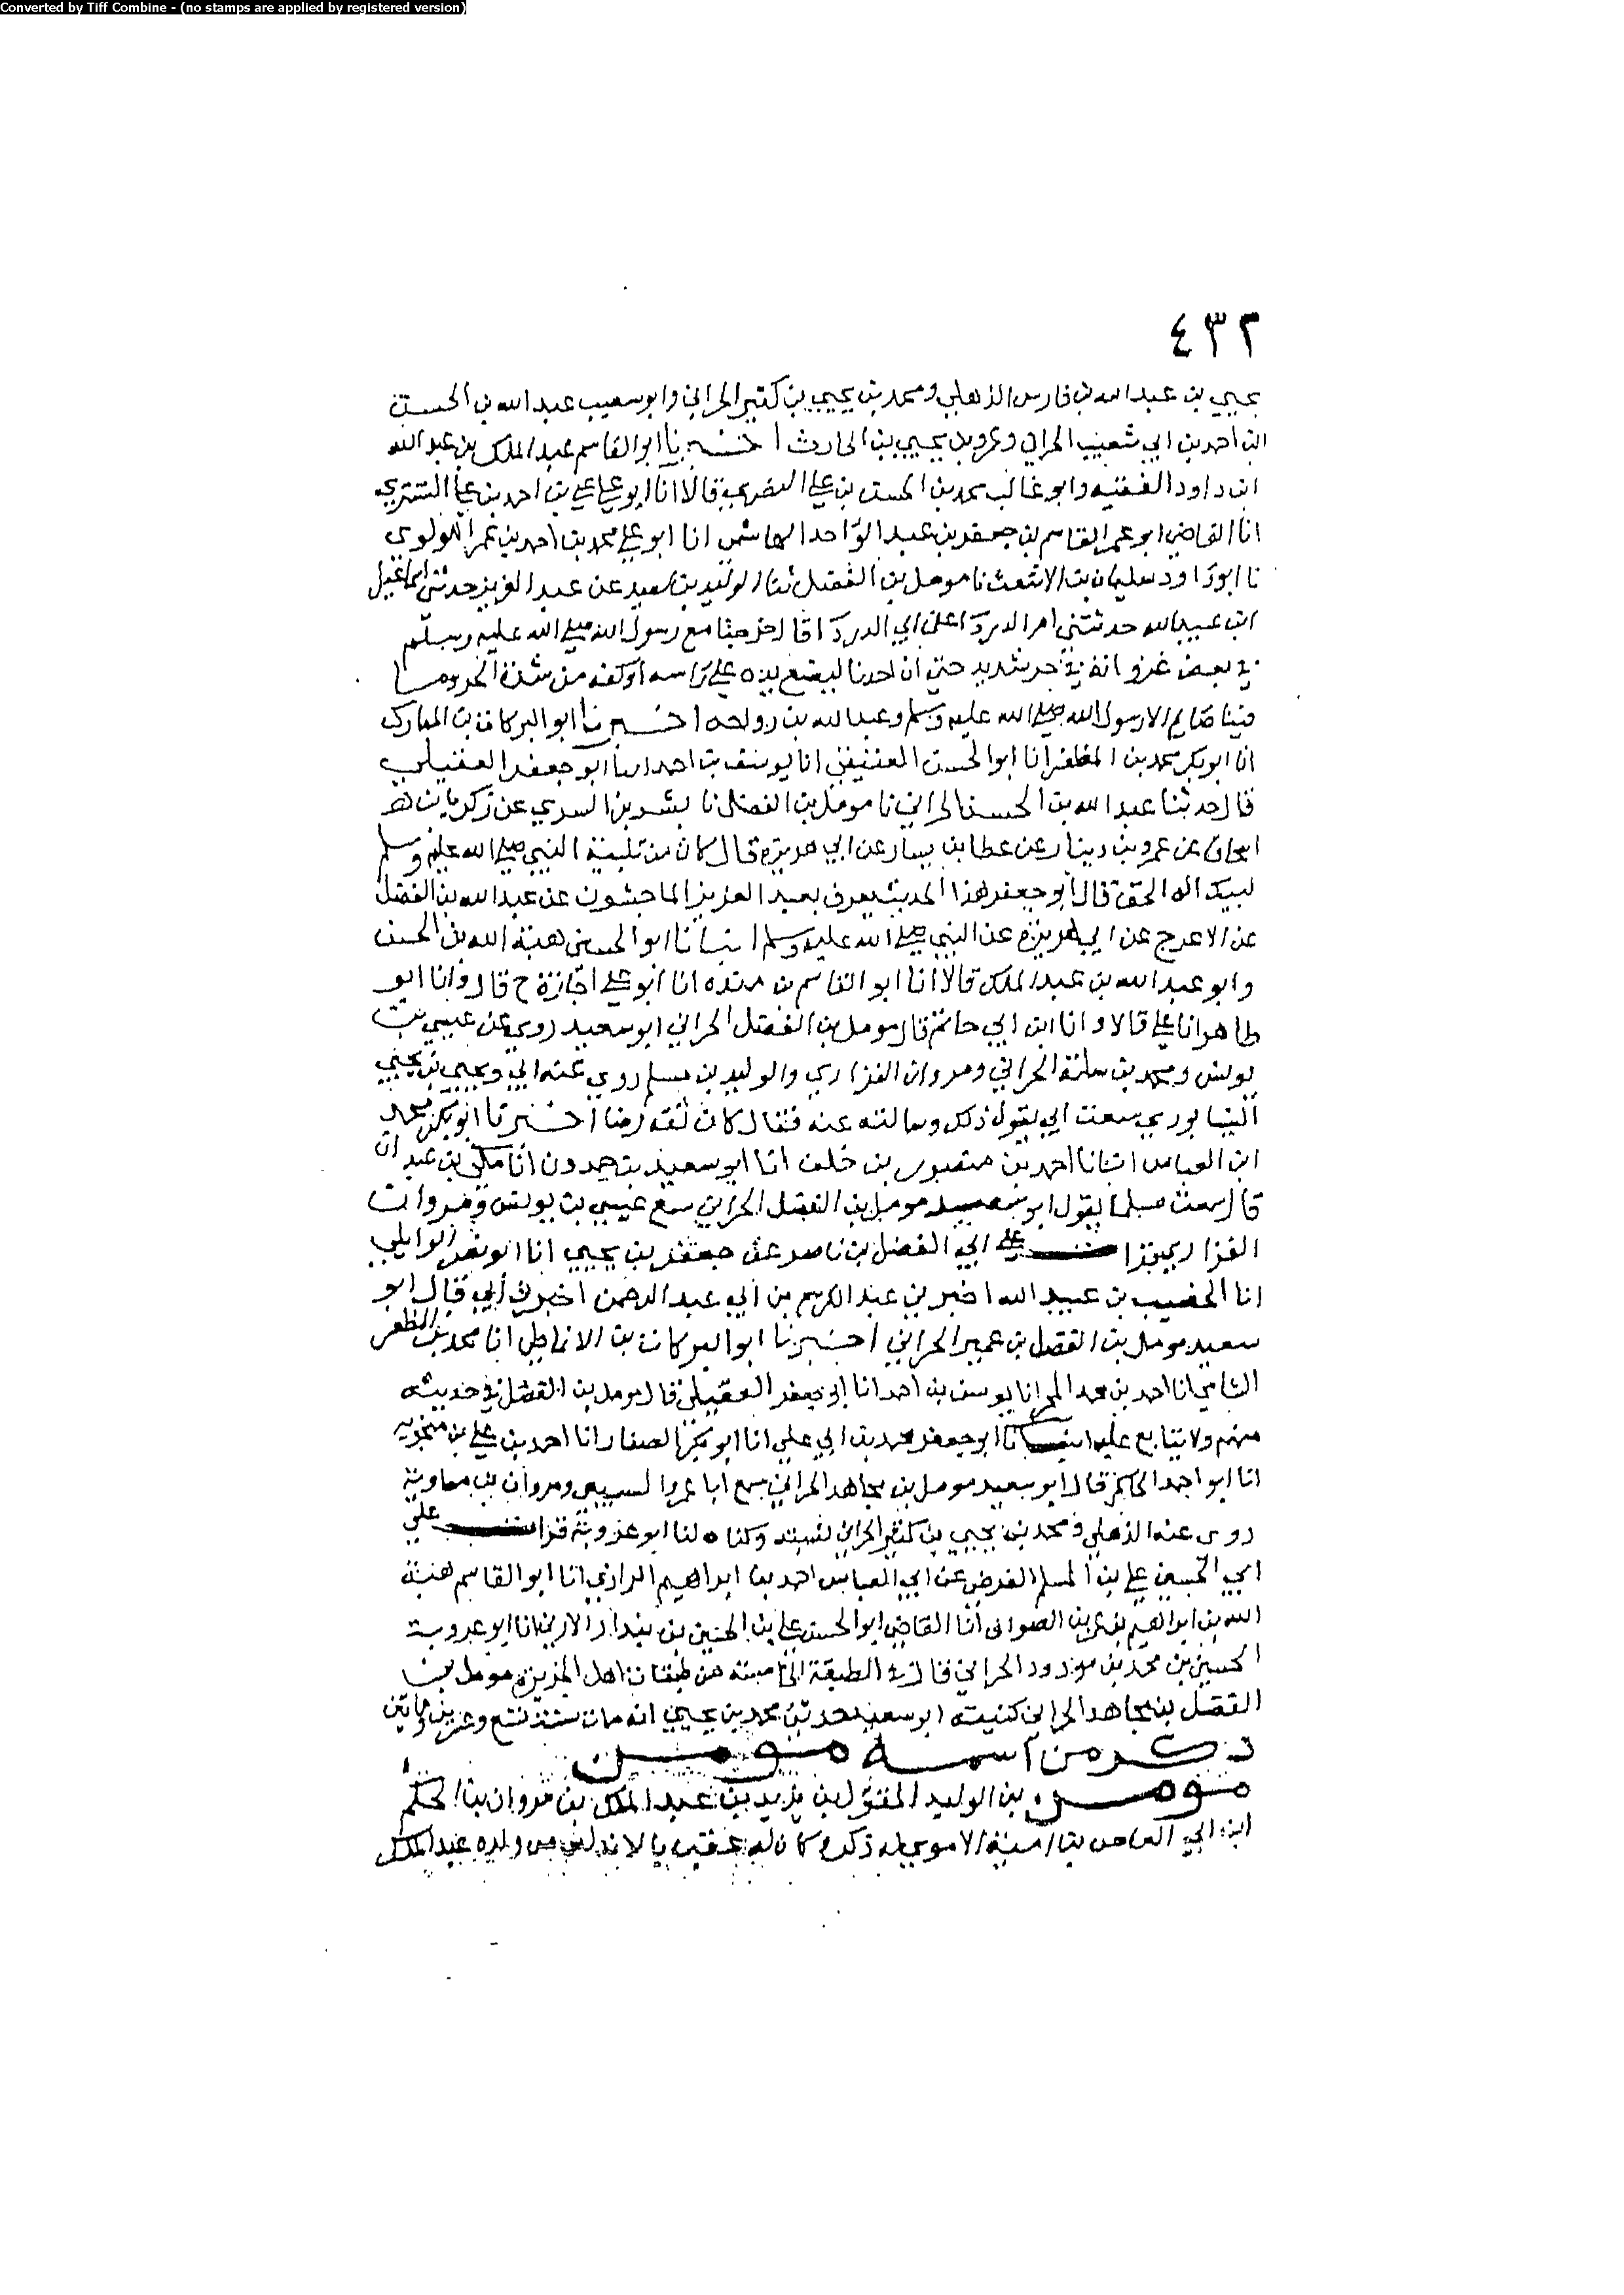 Converted by Tiff Combine - (no stamps are applied by registered version)
٤٣٢
يحيي بن عبد الله بن فارس الذهلي ومحمد بن يحيي بن كثير الحراني وابو سعيب عبد الله بن الحسن
ابن احمد بن ابي شعيب الحراني وعمرو بن يحيي بن الحارث اخبرنا ابو القاسم عبد الملك بن عبد الله
ابن داود الفقيه وابو غالب محمد بن الحسن بن علي البصري قالا انا ابو علي علي بن احمد بن علي التستري
انا القاضي ابو عمر القاسم بن جعفر بن عبد الواحد الهاشمي انا ابو علي محمد بن احمد بن عمر اللولوي
نا ابو داود سليمان بن الاشعث نا مومل بن الفضل ثنا الوليد بن سعيد عن عبد العزيز حدثني اسماعيل
ابن عبيد الله حدثتني ام الدردا عن ابي الدردا قال خرجنا مع رسول الله صلي الله عليه وسلم
في بعض غزواته في حر شديد حتي ان احدنا ليضع يده علي راسه او كفه من شدة الحر وما
فينا صايم الا رسول الله صلي الله عليه وسلم وعبد الله بن رواحه اخبرنا ابو البركات بن المبارك
انا ابو بكر محمد بن المظفر انا ابو الحسن العتيقي انا يوسف بن احمد انا ابو جعفر العقيلي
قال حدثنا عبد الله بن الحسن الحراني نا مومل بن الفضل نا بشر بن السري عن زكريا بن
اسحاق عن عمرو بن دينار عن عطا بن يسار عن ابي هريرة قال كان من تلبية النبي صلي الله عليه وسلم
لبيك اله الحق قال ابو جعفر هذا الحديث يعرف بعبد العزيز الماجشون عن عبد الله بن الفضل
عن الاعرج عن ابي هريرة عن النبي صلي الله عليه وسلم انبانا ابو الحسين هبة الله بن الحسن
وابو عبد الله بن عبد الملك قالا انا ابو القاسم بن منده انا ابو علي اجازة ح قال وانا ابو
طاهر انا علي قالا وانا ابن ابي حاتم قال مومل بن الفضل الحراني ابو سعيد روي عن عيسي بن
يونس ومحمد بن سلمة الحراني ومروان الفزاري والوليد بن مسلم روي عنه ابي ويحيي بن يحيي
النيسابوري سمعت ابي يقول ذلك وسالته عنه فقال كان ثقه رضا اخبرنا ابو بكر محمد
ابن العباس انبانا احمد بن منصور بن خلف انا ابو سعيد بن حمدون انا مكي بن عبدان
قال سمعت مسلما يقول ابو سعيد مومل بن الفضل الحراني سمع عيسي بن يونس ومروان
الفزاري قرات علي ابي الفضل بن ناصر عن جعفر بن يحيي انا ابو نصر الوايلي
انا الخصيب بن عبيد الله اخبرني عبد الكريم بن ابي عبد الرحمن اخبرني أبي قال ابو
سعيد مومل بن الفضل بن عمير الحراني اخبرنا ابو البركات بن الانماطي انا محمد بن المظفر
الشامي انا احمد بن محمد انا يوسف بن احمد انا ابو جعفر العقيلي قال مومل بن الفضل في حديثه
وهم ولا يتابع عليه انبانا ابو جعفر محمد بن ابي علي انا ابو بكر الصفار انا احمد بن علي بن منجويه
انا ابو احمد الحاكم قال ابو سعيد مومل بن مجاهد الحراني سمع ابا عمرو السبيعي ومروان بن معاوية
روى عنه الذهلي ومحمد بن يحيي بن كثير الحراني نسبه وكناه لنا ابو عروبة قرات علي
ابي الحسين علي بن المسلم الفرضي عن ابي العباس احمد بن ابراهيم الرازي انا ابو القاسم هبة
الله بن ابراهيم بن عمر بن الصواف أنا القاضي ابو الحسن علي بن الحسين بن بندار انا ابو عروبة
الحسين بن محمد بن مودود الحراني قال في الطبقة الخامسة من طبقات اهل الجزيرة مومل بن
الفضل بن مجاهد الحراني كنيته ابو سعيد حدثني محمد بن يحيي انه مات سنة تسع وعشرين وماتين
ذكر من اسمه مومن
مومن بن الوليد المقتول بن يزيد بن عبد الملك بن مروان بن الحكم
ابن ابي العاص بن امية الاموي له ذكر وكان له عقب بالاندلس من ولده عبد الملك